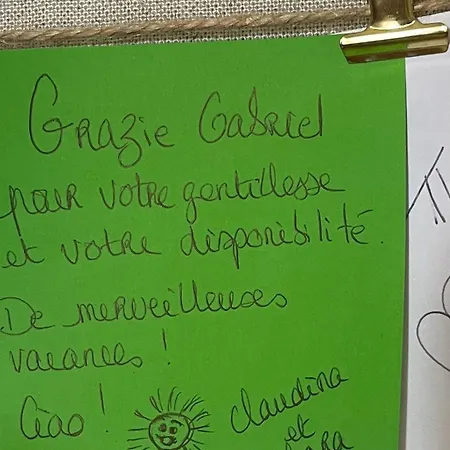 Grazie Gabriel
pour votre gentillesse
et votre disponibilité.
De merveilleuses
vacances !
Ciao !
Claudina
et